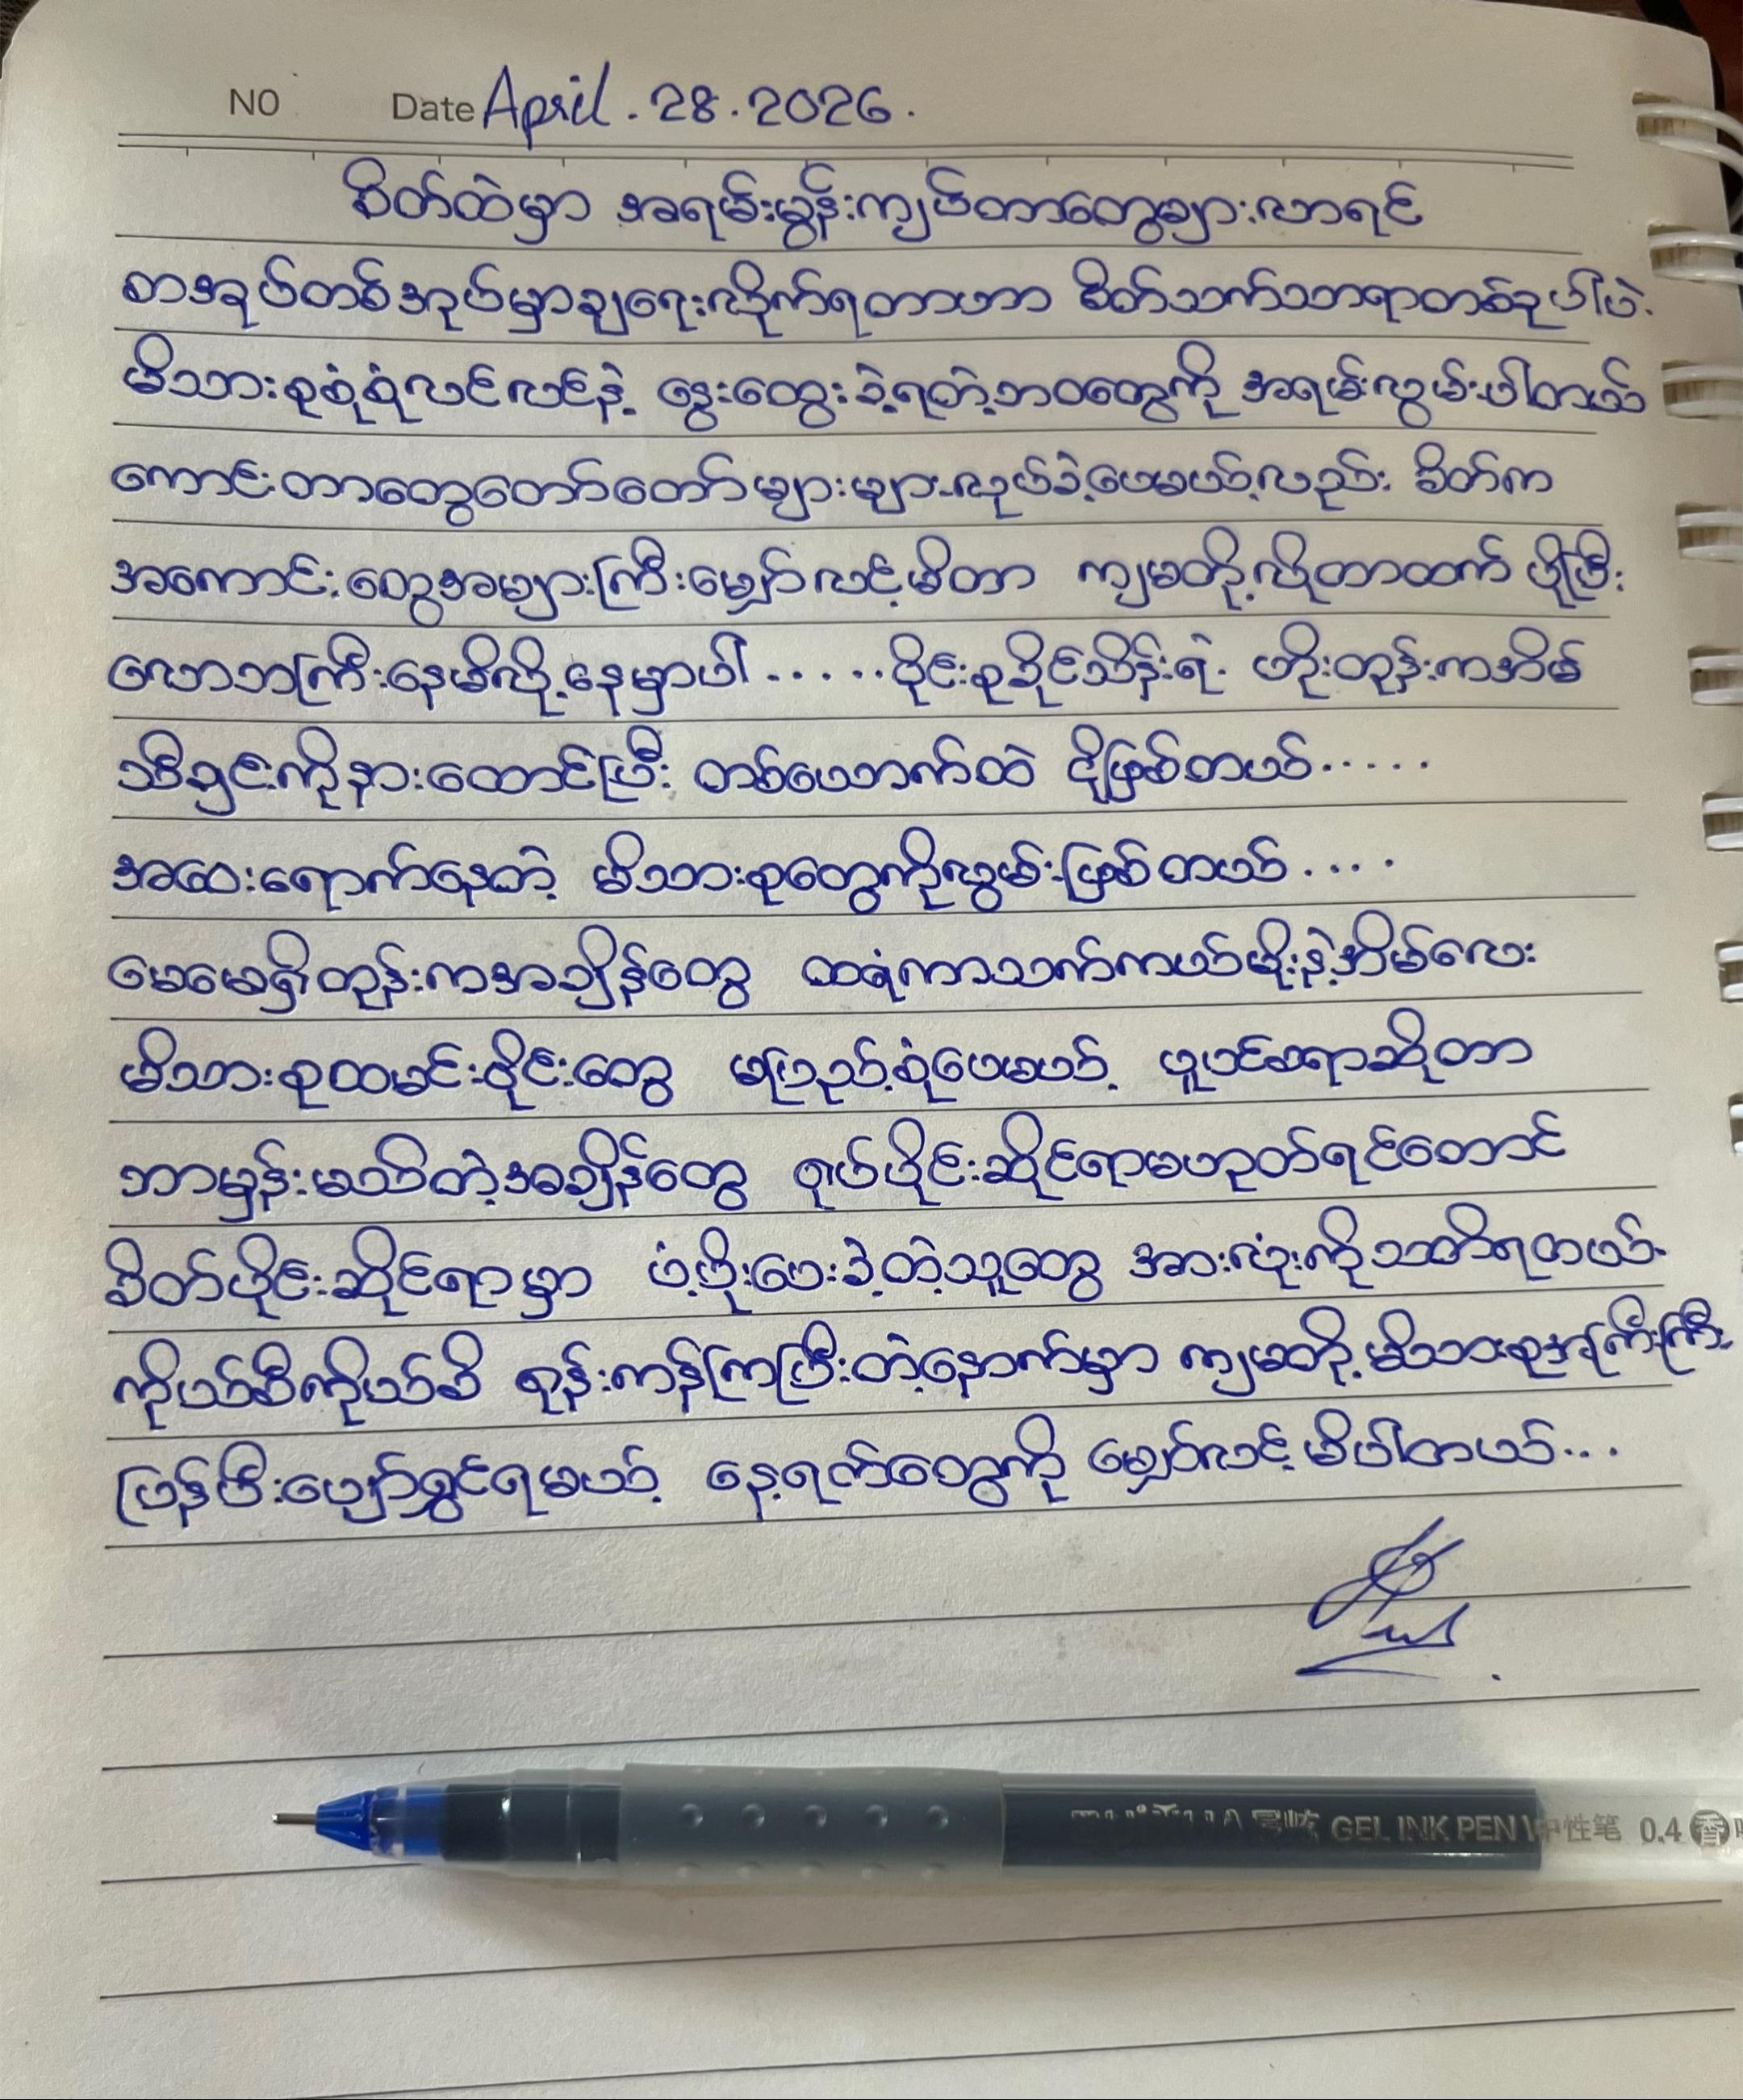 NO Date April . 28 . 2026 .
စိတ်ထဲမှာ အရမ်းမွန်းကျပ်တာတွေများလာရင်
စာအုပ်တစ်အုပ်မှာချရေးလိုက်ရတာဟာ စိတ်သက်သာရာတစ်ခုပါပဲ.
မိသားစုစုံစုံလင်လင်နဲ့ နွေးထွေးခဲ့ရတဲ့ဘဝတွေကို အရမ်းလွမ်းပါတယ်
ကောင်းတာတွေတော်တော်များများလုပ်ခဲ့ပေမယ့်လည်း စိတ်က
အကောင်းတွေအများကြီးမျှော်လင့်မိတာ ကျမတို့လိုတာထက် ပိုပြီး
လောဘကြီးနေမိလို့နေမှာပါ ..... စိုင်းစုခိုင်သိန်းရဲ့ ဟိုးတုန်းကအိမ်
သီချင်းကိုနားထောင်ပြီး တစ်ယောက်ထဲ ငိုဖြစ်တယ်.....
အဝေးရောက်နေတဲ့ မိသားစုတွေကိုလွမ်းဖြစ်တယ်....
မေမေရှိတုန်းကအချိန်တွေ ထရံကာသက်ကယ်မိုးနဲ့အိမ်လေး
မိသားစုထမင်းဝိုင်းတွေ မပြည့်စုံပေမယ့် ပူပင်စရာဆိုတာ
ဘာမှန်းမသိတဲ့အချိန်တွေ ရုပ်ပိုင်းဆိုင်ရာမဟုတ်ရင်တောင်
စိတ်ပိုင်းဆိုင်ရာမှာ ပံ့ပိုးပေးခဲ့တဲ့သူတွေ အားလုံးကိုသတိရတယ်.
ကိုယ်စီကိုယ်စီ ရုန်းကန်ကြပြီးတဲ့နောက်မှာ ကျမတို့ မိသားစုအကြီးကြီး
ပြန်ပြီးပျော်ရွှင်ရမယ့် နေ့ရက်တွေကို မျှော်လင့်မိပါတယ်...
GEL INK PEN
中性笔 0.4